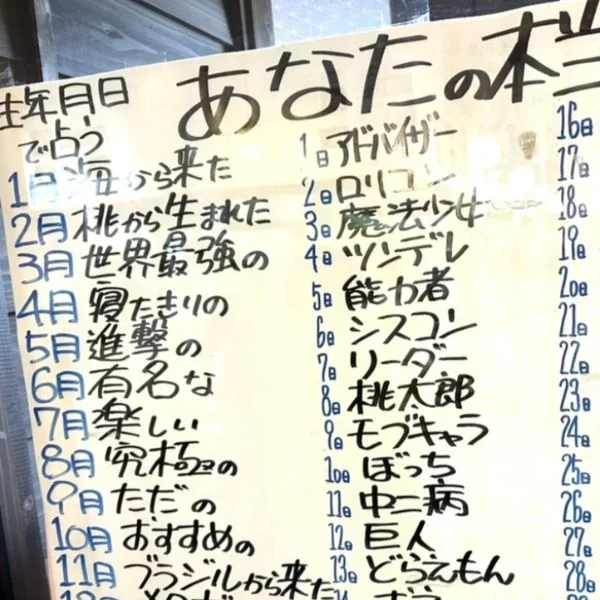 生年月日
で占う
あなたの本当
1月 海から来た
2月 桃から生まれた
3月 世界最強の
4月 寝たきりの
5月 進撃の
6月 有名な
7月 楽しい
8月 究極の
9月 ただの
10月 おすすめの
11月 ブラジルから来た
1日 アドバイザー
2日 ロリコン
3日 魔法少女
4日 ツンデレ
5日 能力者
6日 シスコン
7日 リーダー
8日 桃太郎
9日 モブキャラ
10日 ぼっち
11日 中二病
12日 巨人
13日 どらえもん
16日
17日
18日
19日
20日
21日
22日
23日
24日
25日
26日
27日
28日